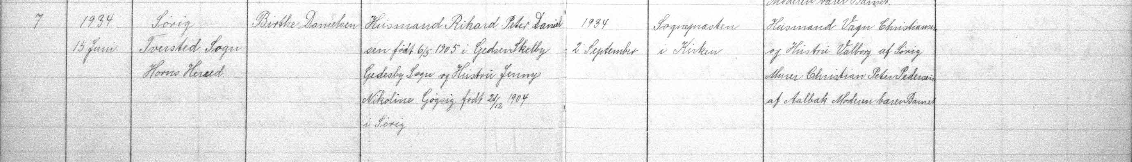 7
1934
15 Juni
Sörig
Tversted Sogn
Horns Herred
Birthe Danielsen
Husmand Rikard Peter Daniel
sen født 6/5 1905 i Gedsen Skelby
Gedesby Sogn og Hustru Jenny
Nikoline Gøgsig født 26/12 1904
i Sörig
1934
2 September
Sognepræsten
i Kirken
Husmand Vagn Christiansen
og Hustru Valborg af Sörig
Murer Christian Peter Pedersen
af Aalbæk Moderen bærer Barnet